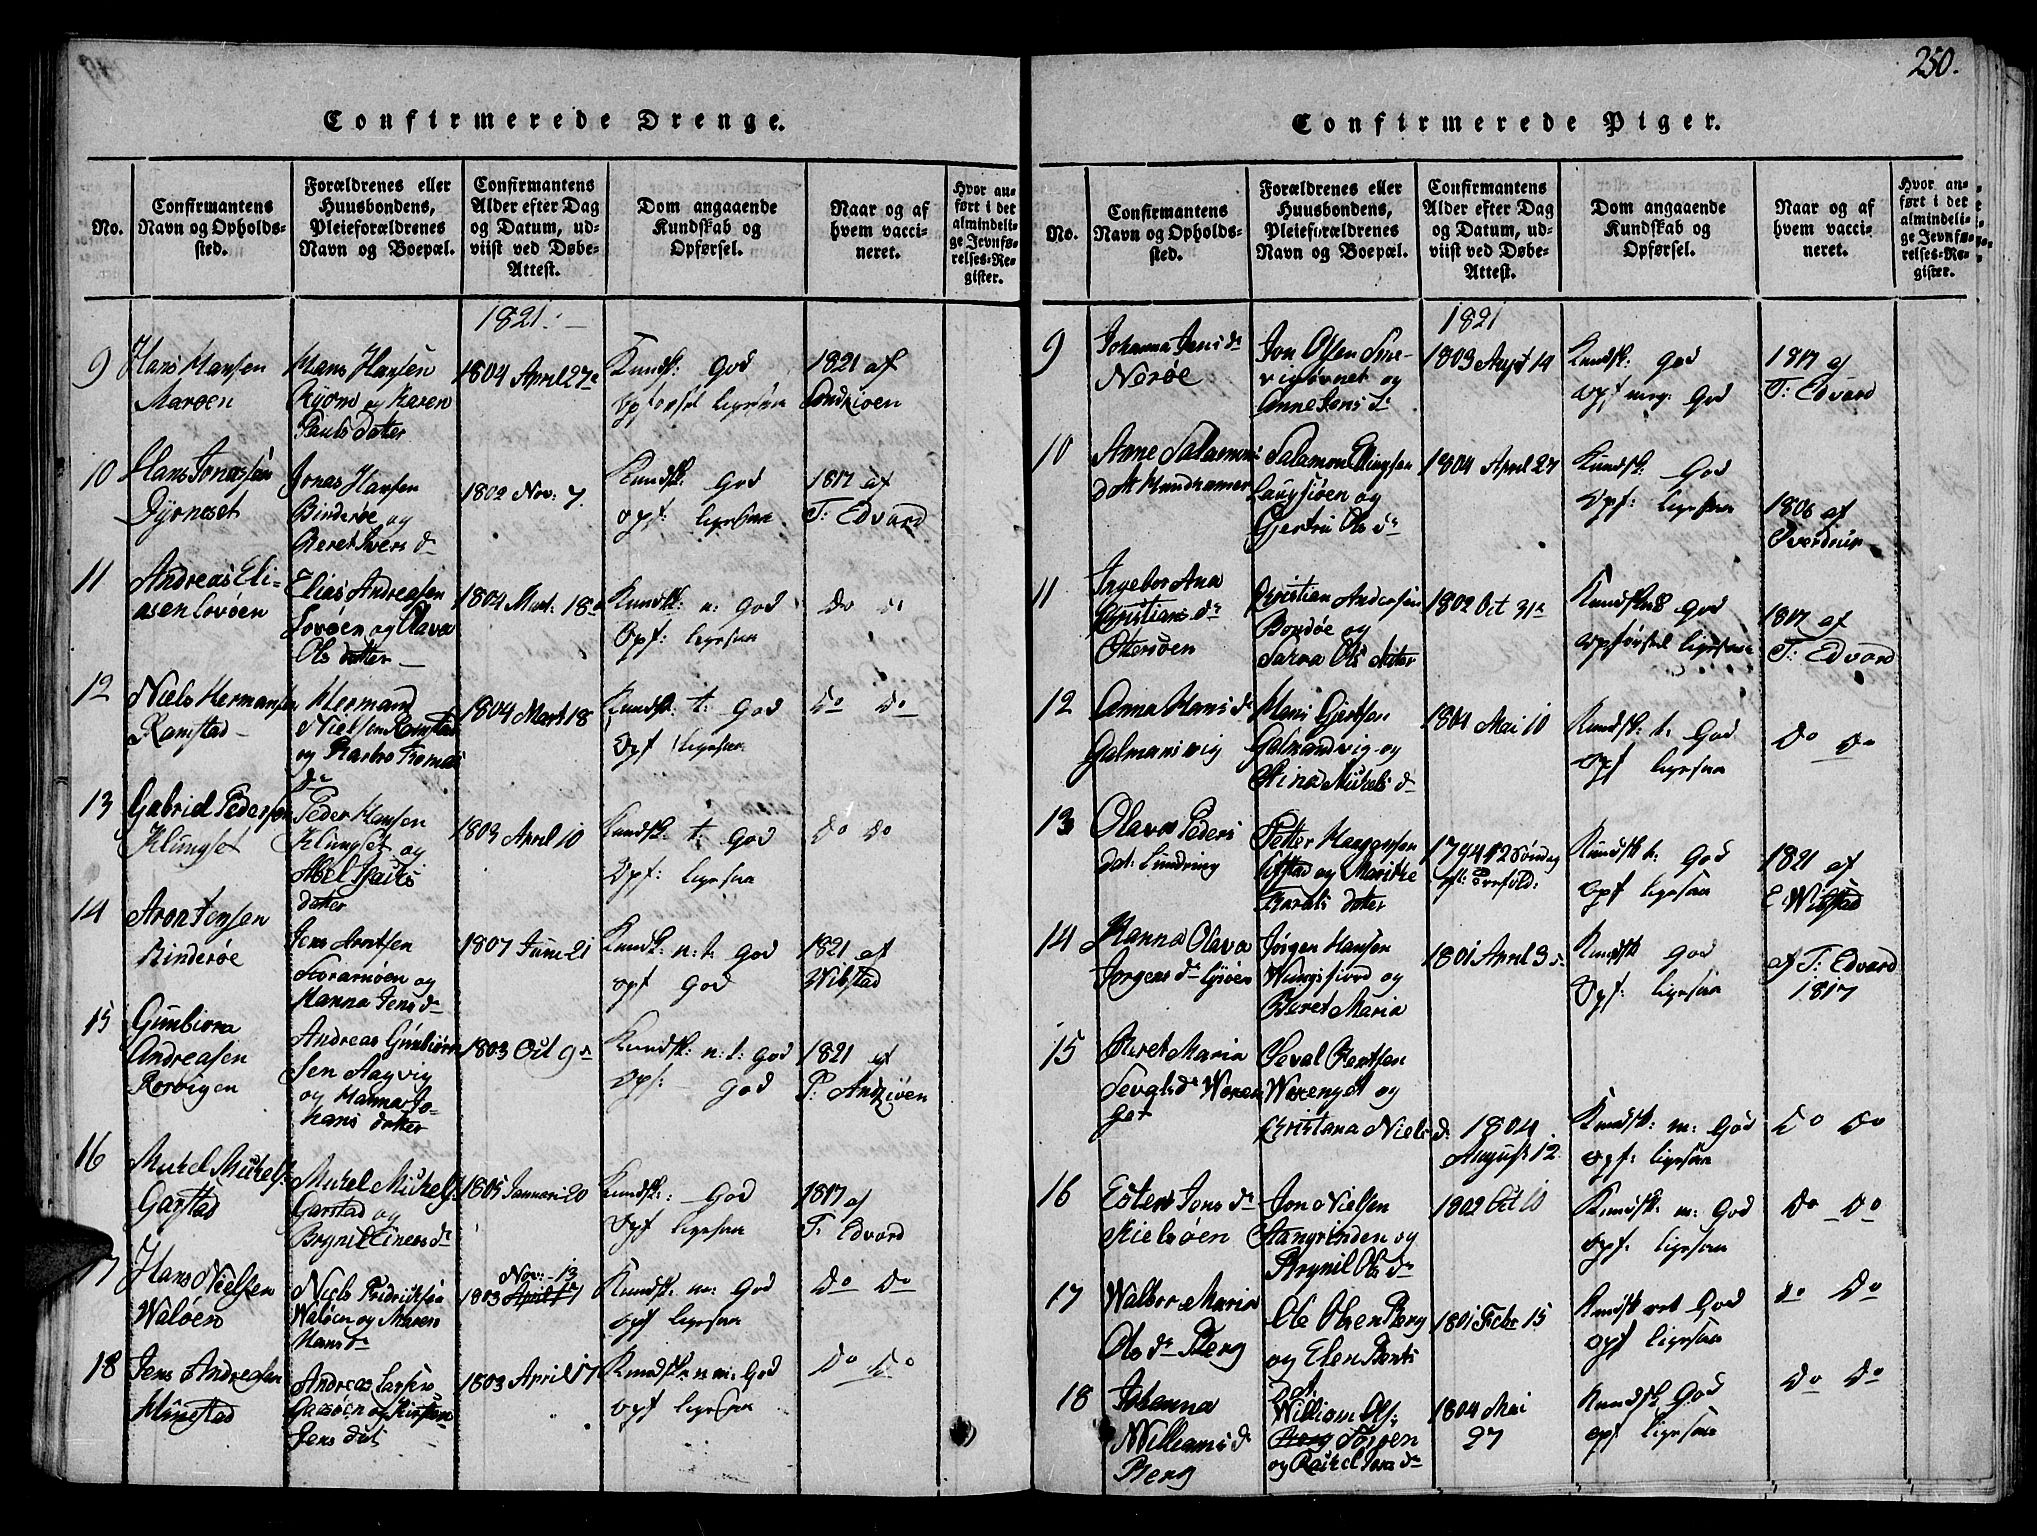 250.
Confirmerede Drenge.
No.
Confirmantens
Navn og Opholds-
sted.
Forældrenes eller
Huusbondens,
Pleieforældrenes
Navn og Boepæl.
Confirmantens
Alder efter Dag
og Datum, ud-
viist ved Døbe-
Attest.
Dom angaaende
Kundskab og
Opførsel.
Naar og af
hvem vacci-
neret.
Hvor an-
ført i det
almindeli-
ge Jevnfø-
relses-Re-
gister.
1821
9
Hans Hansen
Marøen
Hans Hansen
og Karen
Pauls datter
1804 April 27
Kundsk: God
Opførsel ligesaa
1821 af
10
Hans Jonassen
Dyrneset
Jonas Hansen
Binderøe og
Beret Ivers d
1802 Nov: 7
Kundsk: God
Opf: ligesaa
1817 af
T: Edvard
11
Andreas Eli-
asen Lovøen
Elias Andreasen
Lovøen og Olava
Ols datter
1804 Mart: 18
Kundsk: n: God
Opf: ligesaa
Do Do
12
Niels Hermansen
Ramstad
Hermand
Nielsen Ramstad
og Barbro Tomas
d
1804 Mart 18
Kundsk: t: God
Opf ligesaa
Do Do
13
Gabriel Pedersen
Klungset
Peder Hansen
Klungset og
Abel Isacks
datter
1803 April 10
Kundsk: t: God
Opf: ligesaa
Do Do
14
Aron Jensen
Binderøe
Jens Arntsen
Storamøen og
Hanna Jens d
1807 Juni 21
Kundsk: n: t: God
Opf God
1821 af
Wibstad
15
Gunbiora
Andreasen
Rorvigen
Andreas Gunbiørn
sen Aagvig
og Hanna Jo-
hans datter
1803 Oct 9
Kundsk: n: t: God
Opf: God
1821 af
P: Andziøen
16
Mikel Mikels
Garstad
Mikel Mikels
Garstad og
Brynil Einers d
1805 Januari 20
Kundsk: God
Opf ligesaa
1817 af
T: Edvard
17
Hans Nielsen
Waløen
Niels Fridriksen
Waløen og Maren
Hans d
Nov: 13
1803 April 17
Kundsk: m: God
Opf ligesaa
Do Do
18
Jens Andresen
Finestad
Andreas Larsen
og Kirsten
Jens dat
1803 April 17
Kundsk: n m: God
Opf ligesaa
Do Do
Confirmerede Piger.
No.
Confirmantens
Navn og Opholds-
sted.
Forældrenes eller
Huusbondens,
Pleieforældrenes
Navn og Boepæl.
Confirmantens
Alder efter Dag
og Datum, ud-
viist ved Døbe-
Attest.
Dom angaaende
Kundskab og
Opførsel.
Naar og af
hvem vacci-
neret.
Hvor an-
ført i det
almindeli-
ge Jevnfø-
relses-Re-
gister.
1821
9
Johanna Jons d
Nerøe
Jon Olsen Sme-
vigørnet og
Anne Jens d
1803 Augst 14
Kundsk: God
Opf meg: God
1817 af
T: Edvard
10
Anne Salamons
dott Hundhamer
Salamon Ellingsen
Laugsiøen og
Gjertru Ols d
1804 April 27
Kundsk: God
Opf: ligesaa
1806 af
Overdrup
11
Ingebor Ana
Cristians d
Ottersøen
Cristian Andersen
Bondøe og
Sarra Ols datter
1802 Oct 31
Kundskab God
Opførsel ligesaa
1817 af
T: Edvard
12
Anna Hans d
Galmansvig
Hans Gjertsen
Galmandvig og
Stina Mikels d
1804 Mai 10
Kundsk: t: God
Opf ligesaa
Do Do
13
Olava Peders
dat: Lundring
Petter Haagensen
og Marithe
datter
1794 12 Søndag
Kundsk t: God
Opf ligesaa
1821 af
E Wibstad
14
Hanna Olava
Jørgens d
Jørgen Hansen
og
Beret Maria
1801 April 3
Kundsk God
Opf: ligesaa
af T: Edvard
1817
15
Beret Maria
Sevalsd Weren
get
Seval Bentsen
Werenget og
Cristiana Niels d
1804
August 12
Kundsk: m: God
Opf: ligesaa
Do Do
16
Ester Jons d
Kielsøen
Jon Nielsen
Stangrinden og
Brynil Ols d
1802 Oct 10
Kundsk: m: God
Opf: ligesaa
Do Do
17
Walbor Maria
Ols d Berg
Ole Olsen Berg
og Elen Bents
dat
1801 Febr 15
Kundsk ret God
Opf ligesaa
Do Do
18
Johanna
Williams d
Berg
William Ols:
Berg Torsøen
og Rakel Jens d
1804 Mai
27
Kundsk God
Opf ligesaa
Do Do